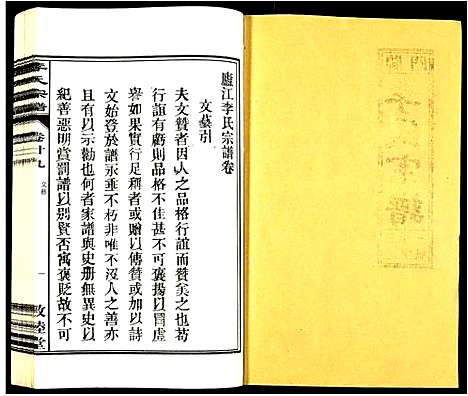 廬江李氏宗譜卷
文藝引
夫文贊者因人之品格行誼而贊美之也苟
行誼有虧則品格不佳甚不可褒揚以冒虛
譽如果行美者或贈以傳贊或加以詩
文始登於譜永垂不朽非唯不沒人之善亦
且有以示勸也何者家譜與史册無異史以
紀善惡明賞罰譜以別賢否寓褒貶故不可
李氏宗譜
卷廿九
文藝
一
敦睦堂
宗譜